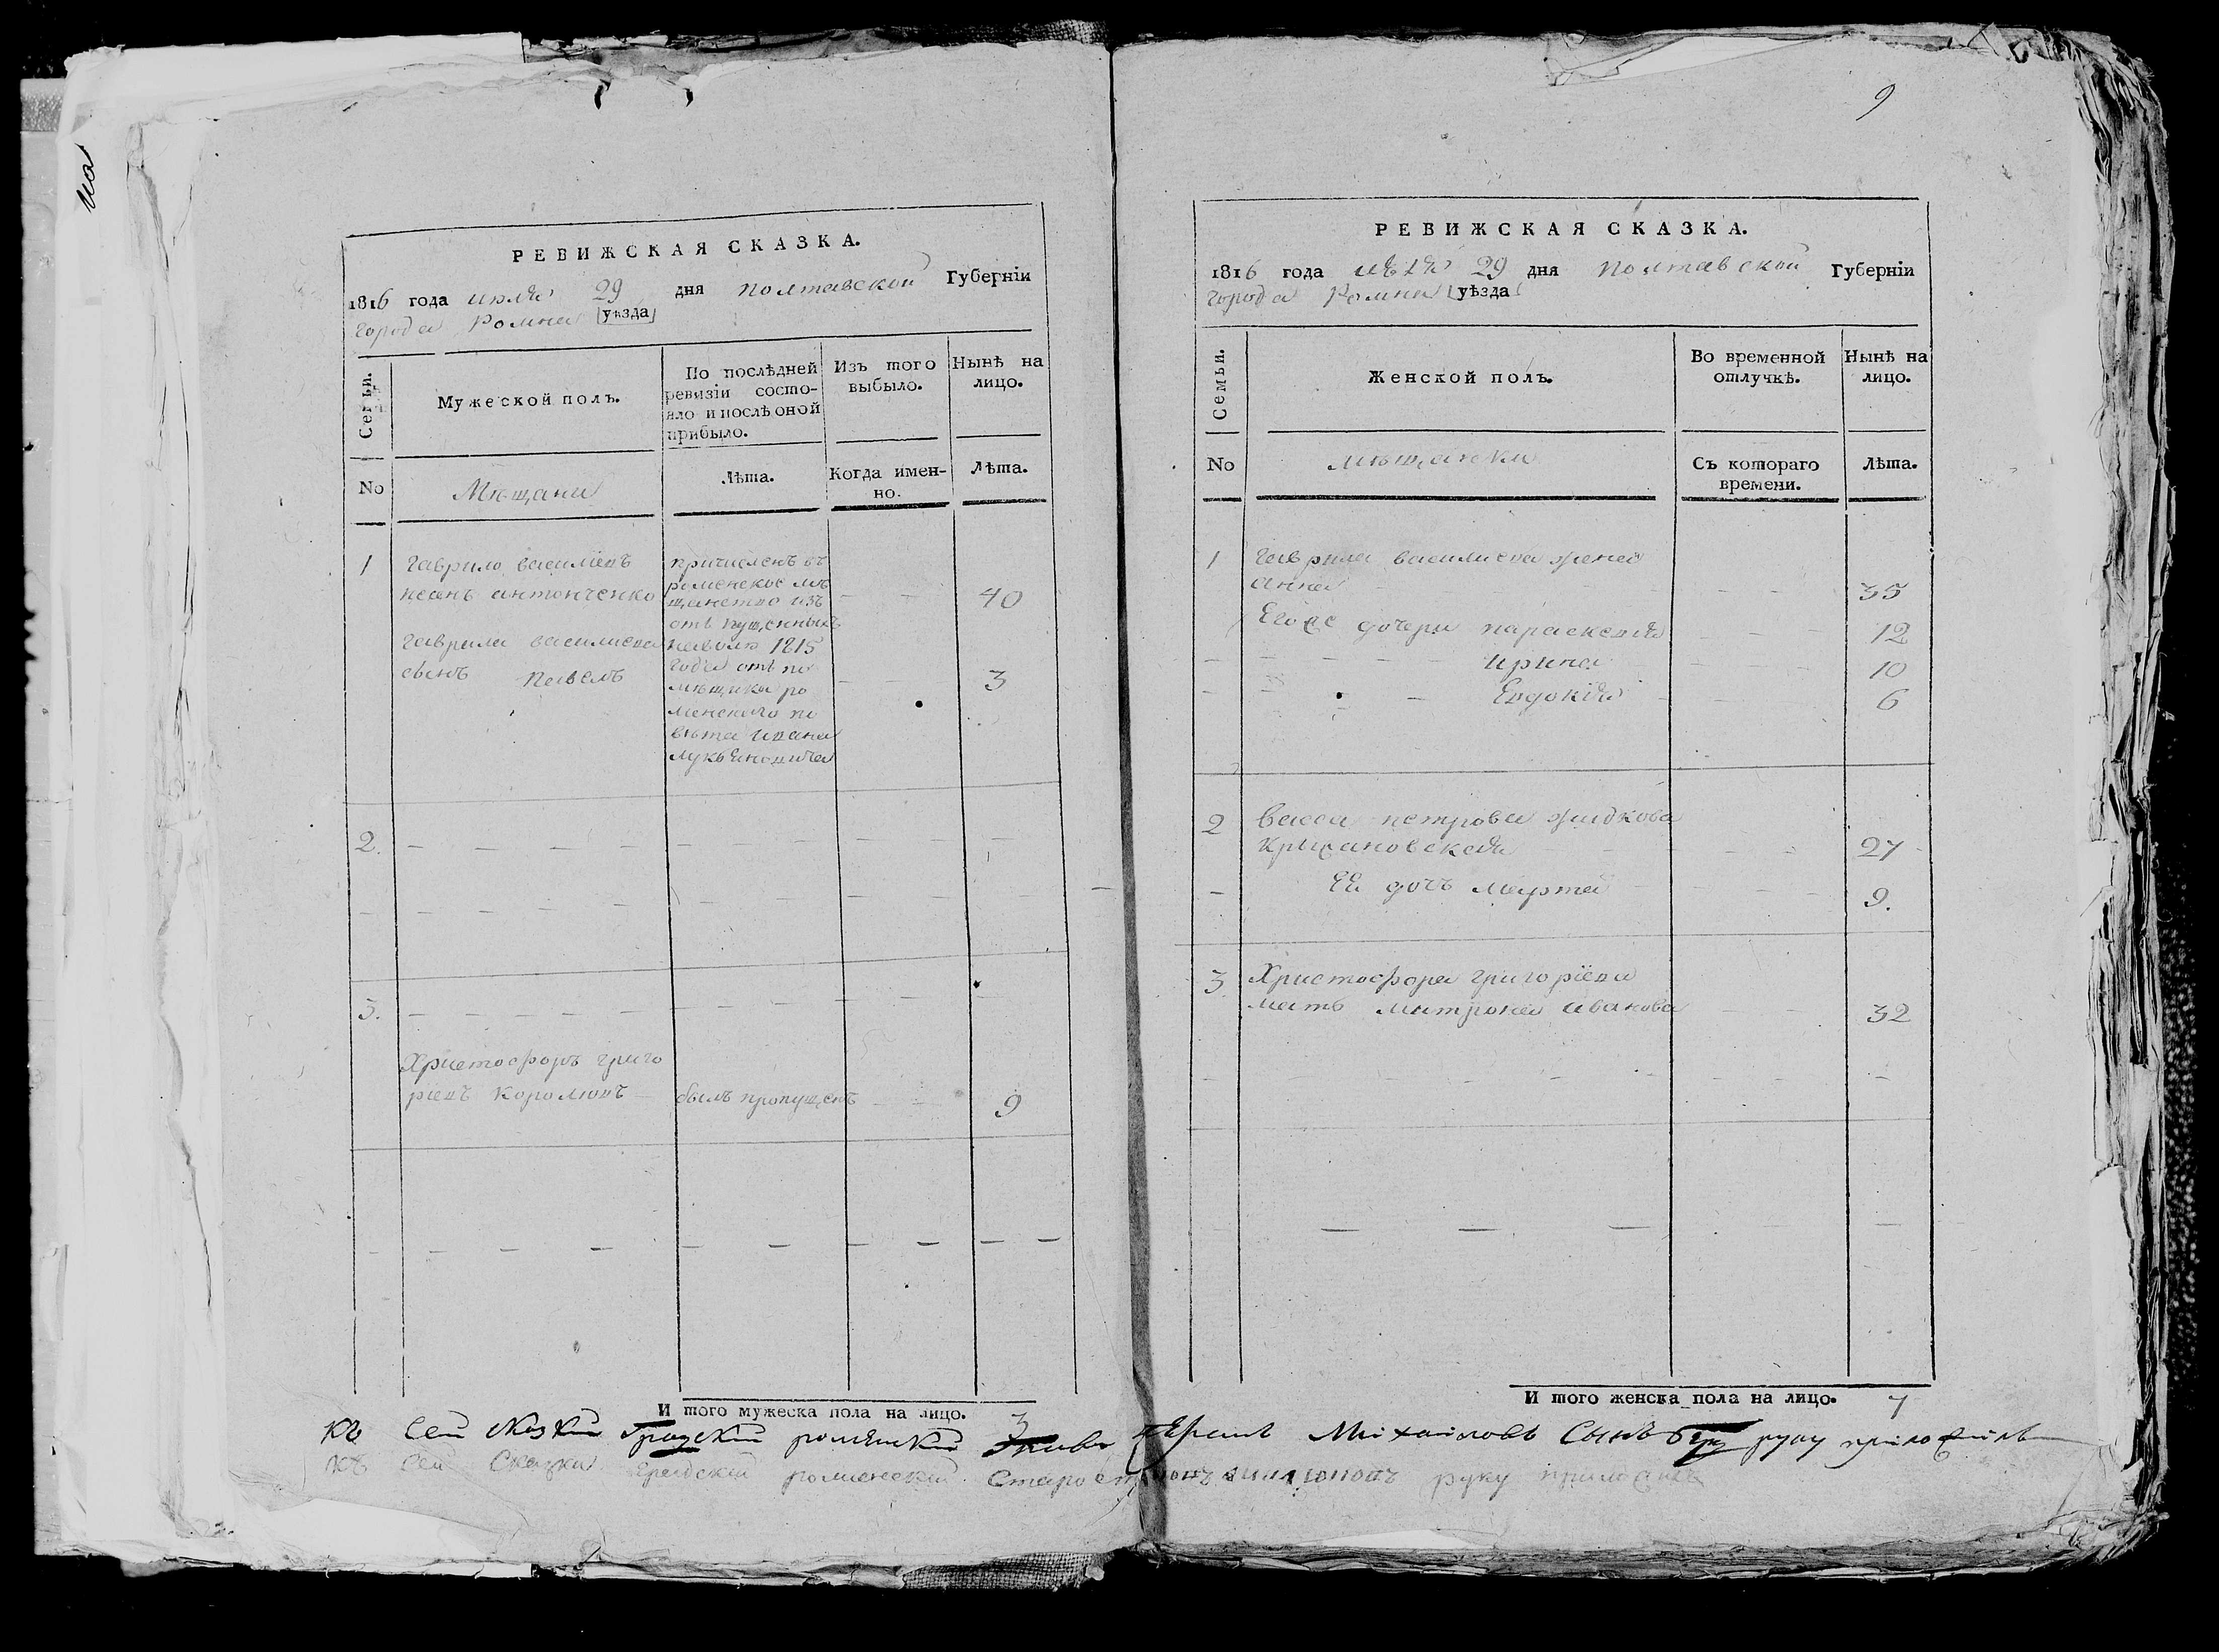 на
РЕВИЖСКАЯ СКАЗКА.
1816 года июля 29 дня Полтавской Губерніи
города Ромна уѣзда
Семьи.
Мужеской полъ.
По послѣдней ревизіи состояло и послѣ оной прибыло.
Изъ того выбыло.
Нынѣ на лицо.
No
Мѣщани
Лѣта.
Когда именно.
Лѣта.
1
гаврило василіевъ
антонченко
40
гаврила василиева
сынъ павелъ
3
причисленъ въ
роменское мѣ
щанство изъ
отпущенныхъ
наволю 1815
года отъ по
мѣщика ро
менского по
вѣта ивана
лукьяновича
2.
3.
Христофоръ григо
риевъ
былъ пропущенъ
9
И того мужеска пола на лицо. 3
9
РЕВИЖСКАЯ СКАЗКА.
1816 года июля 29 дня Полтавской Губерніи
города Ромна уѣзда
Семьи.
Женской полъ.
Во временной отлучкѣ.
Нынѣ на лицо.
No
мѣщанки
Съ котораго времени.
Лѣта.
1
гаврила василиева жена
анна
35
Его дочери параскевия
12
ирина
10
Евдокія
6
2
васса петрова
27
Её дочь марта
9.
3
Христофора григоріева
мать матрона иванова
32
И того женска пола на лицо. 7
къ сей сказки роменский Михайловъ сынъ руку приложилъ
къ сей сказки градский роменский староста руку приложилъ